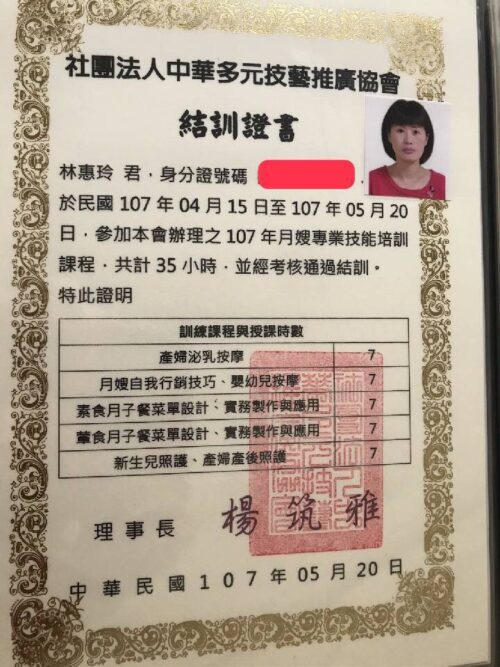 社團法人中華多元技藝推廣協會
結訓證書
林惠玲 君，身分證號碼
於民國 107 年 04 月 15 日至 107 年 05 月 20
日，參加本會辦理之 107 年月嫂專業技能培訓
課程，共計 35 小時，並經考核通過結訓。
特此證明
訓練課程與授課時數
產婦泌乳按摩 7
月嫂自我行銷技巧、嬰幼兒按摩 7
素食月子餐菜單設計、實務製作與應用 7
葷食月子餐菜單設計、實務製作與應用 7
新生兒照護、產婦產後照護 7
理事長 楊筑雅
中華民國 107 年 05 月 20 日